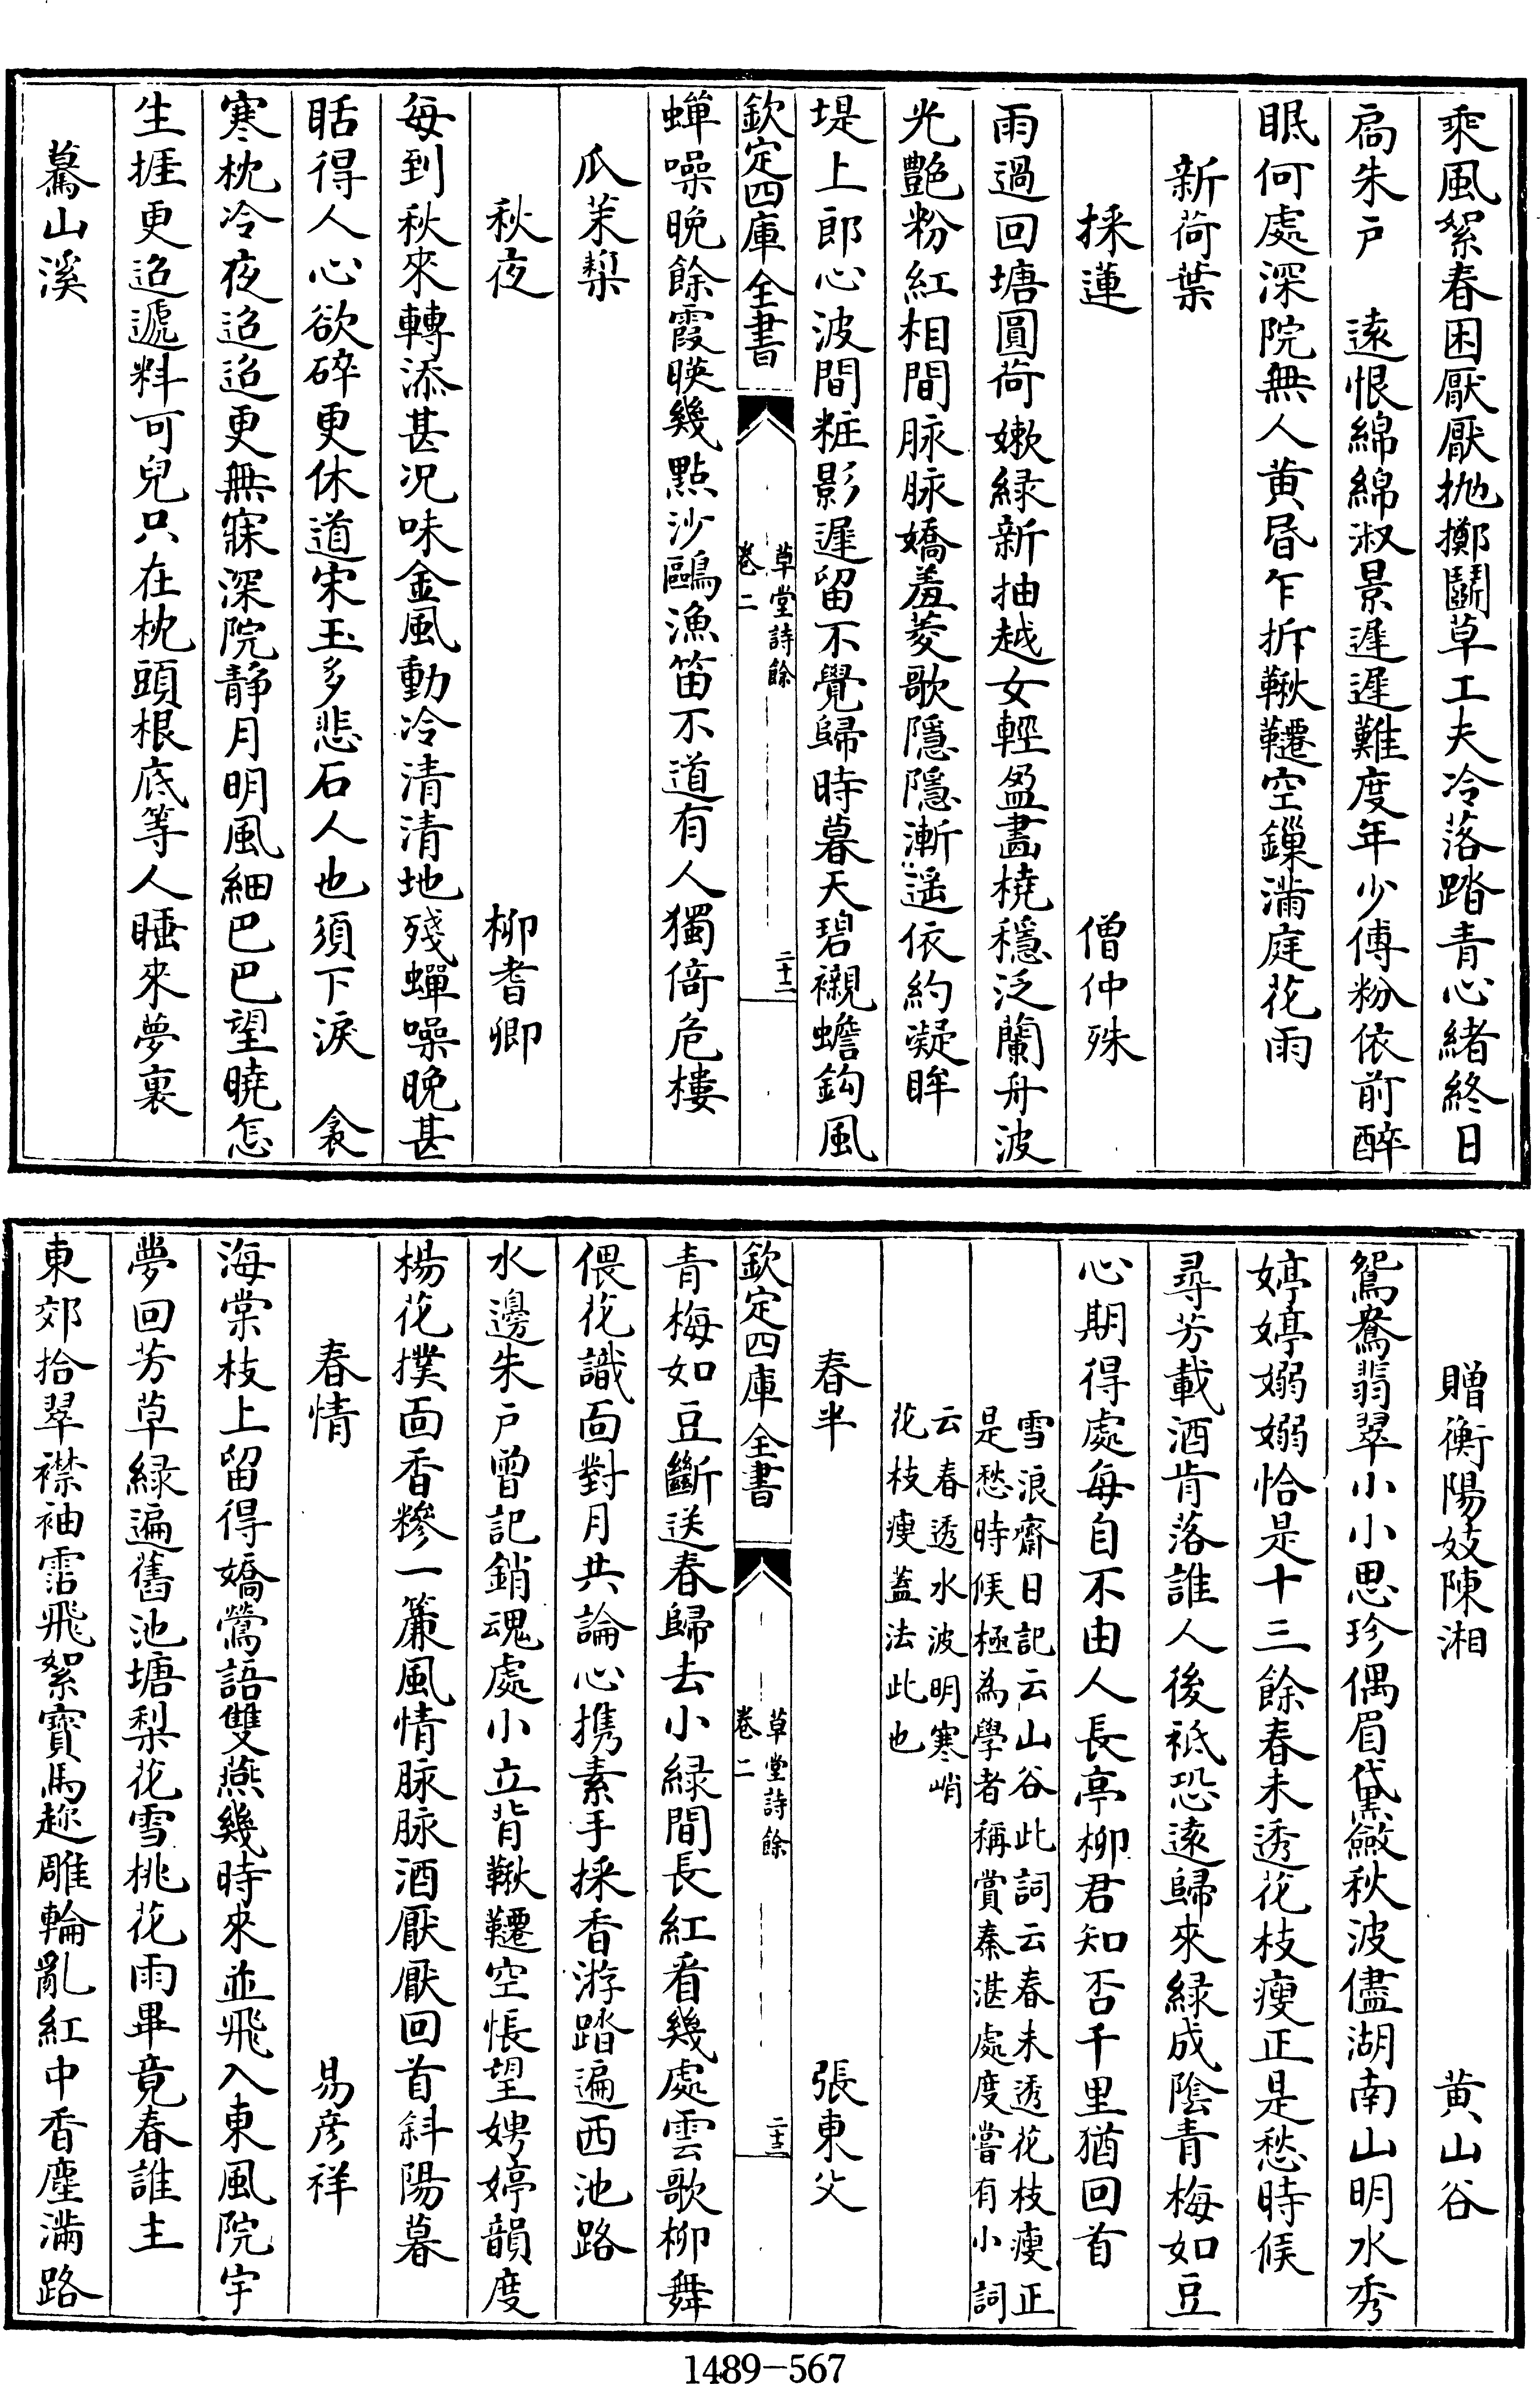 乘風絮春困厭厭抛擲鬭草工夫冷落踏青心緒終日
扄朱戸　遠恨綿綿淑景遲遲難度年少傅粉依前醉
眠何處深院無人黄昏乍拆鞦韆空鏁滿庭花雨
新荷葉
採蓮　僧仲殊
雨過回塘圓荷嫩緑新抽越女輕盈畵橈穩泛蘭舟波
光艷粉紅相間脉脉嬌羞菱歌隱隱漸遥依約凝眸
堤上郎心波間粧影遲留不覺歸時暮天碧襯蟾鈎風
欽定四庫全書　草堂詩餘　卷二　二十二
蟬噪晚餘霞暎幾點沙鷗漁笛不道有人獨倚危樓
瓜茉棃
秋夜　柳耆卿
每到秋來轉添甚况味金風動冷清清地殘蟬噪晚甚
聒得人心欲碎更休道宋玉多悲石人也須下淚　衾
寒枕冷夜迢迢更無寐深院靜月明風細巴巴望曉怎
生捱更迢遞料可兒只在枕頭根底等人睡來夢裏
驀山溪
贈衡陽妓陳湘　黄山谷
鴛鴦翡翠小小思珍偶眉黛斂秋波儘湖南山明水秀
婷婷嫋嫋恰是十三餘春未透花枝瘦正是愁時候
尋芳載酒肯落誰人後祗恐遠歸來緑成陰青梅如豆
心期得處每自不由人長亭柳君知否千里猶回首
雪浪齋日記云山谷此詞云春未透花枝瘦正
是愁時候極為學者稱賞秦湛處度嘗有小詞
云春透水波明寒峭
花枝瘦蓋法此也
春半　張東父
欽定四庫全書　草堂詩餘　卷二　二十三
青梅如豆斷送春歸去小緑間長紅看幾處雲歌柳舞
偎花識面對月共論心携素手採香游踏遍西池路
水邊朱戸曽記銷魂處小立背鞦韆空悵望娉婷韻度
楊花撲面香糝一簾風情脉脉酒厭厭回首斜陽暮
春情　易彦祥
海棠枝上留得嬌鶯語雙燕幾時來並飛入東風院宇
夢回芳草緑遍舊池塘梨花雪桃花雨畢竟春誰主
東郊拾翠襟袖霑飛絮寳馬趂雕輪亂紅中香塵滿路
1489-567